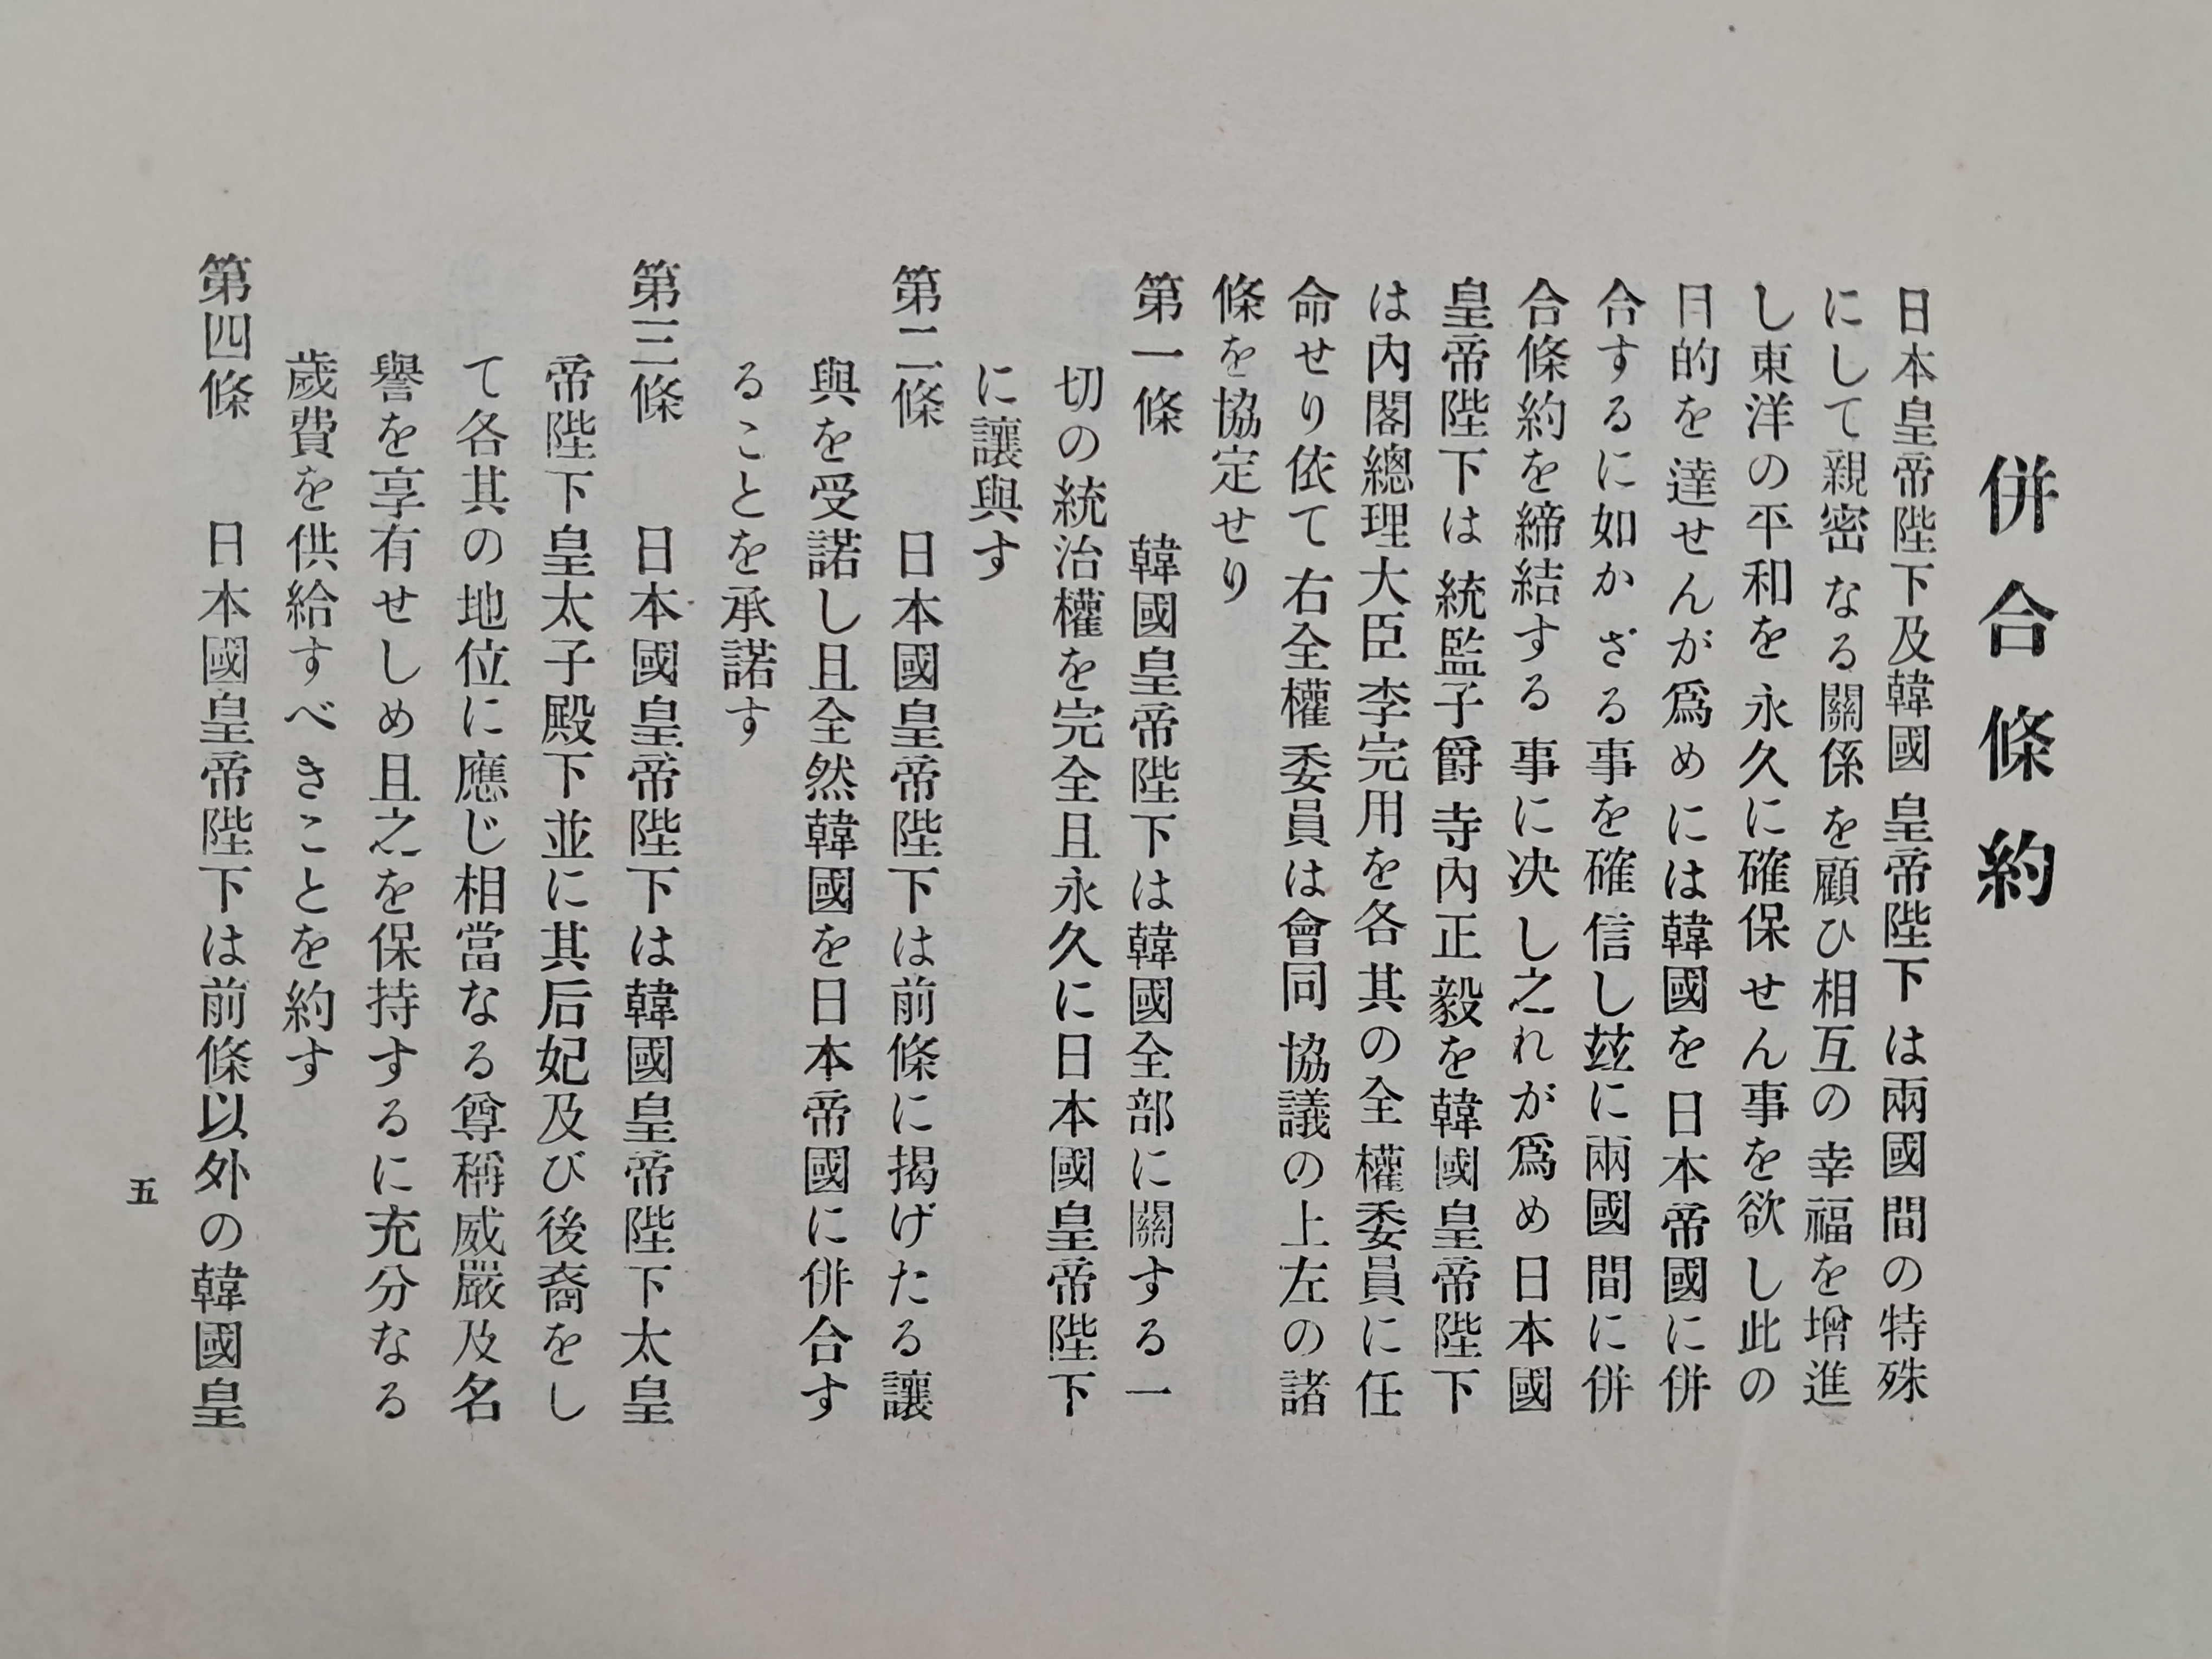 併合條約
日本皇帝陛下及韓國皇帝陛下は兩國間の特殊
にして親密なる關係を顧ひ相互の幸福を增進
し東洋の平和を永久に確保せん事を欲し此の
目的を達せんが爲めには韓國を日本帝國に併
合するに如かざる事を確信し玆に兩國間に併
合條約を締結する事に決し之れが爲め日本國
皇帝陛下は統監子爵寺內正毅を韓國皇帝陛下
は內閣總理大臣李完用を各其の全權委員に任
命せり依て右全權委員は會同協議の上左の諸
條を協定せり
第一條 韓國皇帝陛下は韓國全部に關する一
切の統治權を完全且永久に日本國皇帝陛下
に讓與す
第二條 日本國皇帝陛下は前條に揭げたる讓
與を受諾し且全然韓國を日本帝國に併合す
ることを承諾す
第三條 日本國皇帝陛下は韓國皇帝陛下太皇
帝陛下皇太子殿下並に其后妃及び後裔をし
て各其の地位に應じ相當なる尊稱威嚴及名
譽を享有せしめ且之を保持するに充分なる
歲費を供給すべきことを約す
第四條 日本國皇帝陛下は前條以外の韓國皇
五